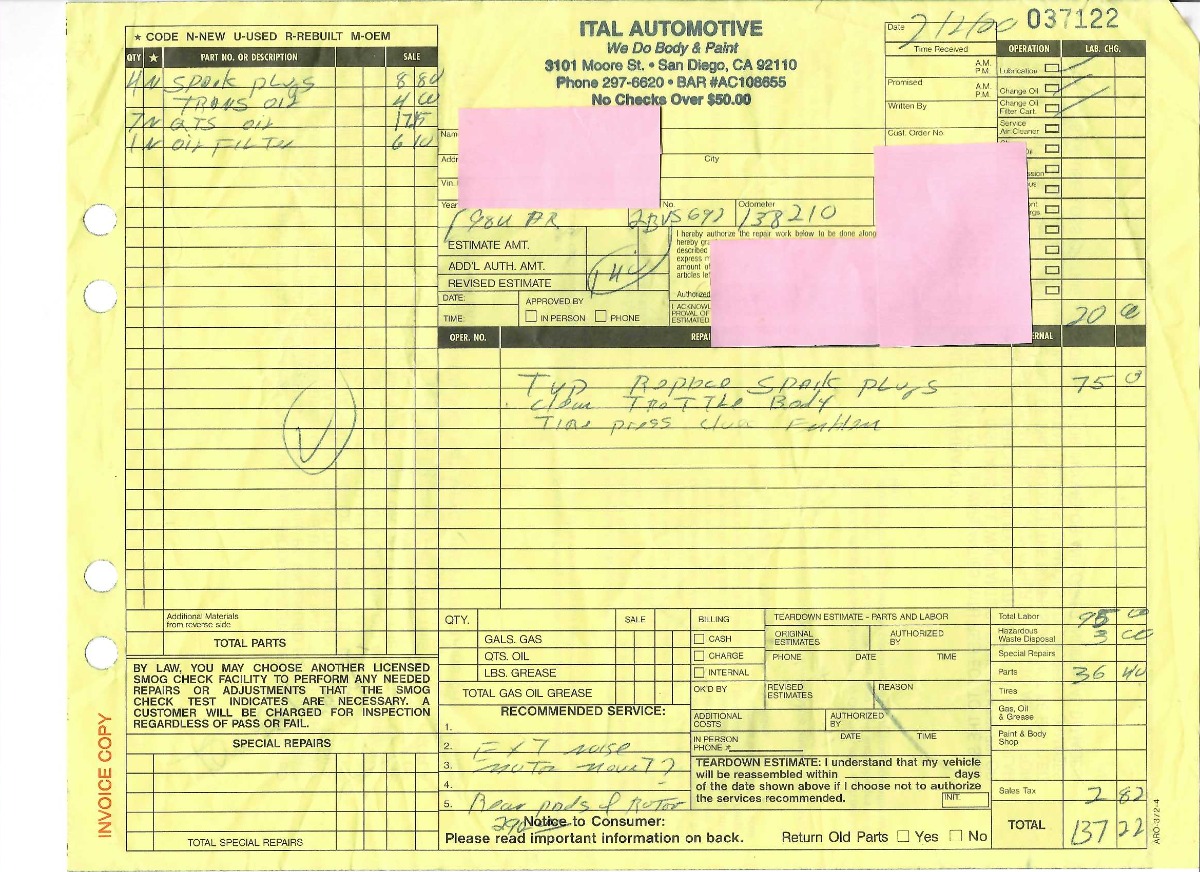 ITAL AUTOMOTIVE
We Do Body & Paint
3101 Moore St. • San Diego, CA 92110
Phone 297-6620 • BAR #AC108655
No Checks Over $50.00
037122
Date
Time Received
A.M.
P.M.
Promised
A.M.
P.M.
Written By
Cust. Order No.
OPERATION LAB. CHG.
Lubrication
Change Oil
Change Oil
Filter Cart.
Service
Air Cleaner
20 00
★ CODE N-NEW U-USED R-REBUILT M-OEM
QTY ★ PART NO. OR DESCRIPTION SALE
4 N Spark plugs 8 80
TRANS oil 4 00
7 N QTS oil 175
1 N oil FILTER 6 10
Name
City
Vin.
Year No. Odometer
2BVS692 138210
ESTIMATE AMT.
ADD'L AUTH. AMT. 140
REVISED ESTIMATE
DATE: APPROVED BY
TIME: IN PERSON PHONE
I hereby authorize the repair work below to be done along
hereby
described
express
amount of
articles
Authorized
I ACKNOWL
PROVAL OF
ESTIMATED
OPER. NO.
Replace Spark plugs 75 0
clean The Body
Additional Materials
from reverse side
TOTAL PARTS
BY LAW, YOU MAY CHOOSE ANOTHER LICENSED
SMOG CHECK FACILITY TO PERFORM ANY NEEDED
REPAIRS OR ADJUSTMENTS THAT THE SMOG
CHECK TEST INDICATES ARE NECESSARY. A
CUSTOMER WILL BE CHARGED FOR INSPECTION
REGARDLESS OF PASS OR FAIL.
SPECIAL REPAIRS
TOTAL SPECIAL REPAIRS
INVOICE COPY
QTY. SALE
GALS. GAS
QTS. OIL
LBS. GREASE
TOTAL GAS OIL GREASE
RECOMMENDED SERVICE:
1.
2. noise
3.
4.
5. Rear pads & Rotor
290
Notice to Consumer:
Please read important information on back.
BILLING
CASH
CHARGE
INTERNAL
OK'D BY
TEARDOWN ESTIMATE - PARTS AND LABOR
ORIGINAL
ESTIMATES
AUTHORIZED
BY
PHONE DATE TIME
REVISED
ESTIMATES
REASON
ADDITIONAL
COSTS
AUTHORIZED
BY
IN PERSON
PHONE #
DATE TIME
TEARDOWN ESTIMATE: I understand that my vehicle
will be reassembled within days
of the date shown above if I choose not to authorize
the services recommended.
INIT.
Return Old Parts Yes No
Total Labor 95 00
Hazardous
Waste Disposal 3 00
Special Repairs
Parts 36 40
Tires
Gas, Oil
& Grease
Paint & Body
Shop
Sales Tax 2 82
TOTAL 137 22
ARO-372-4